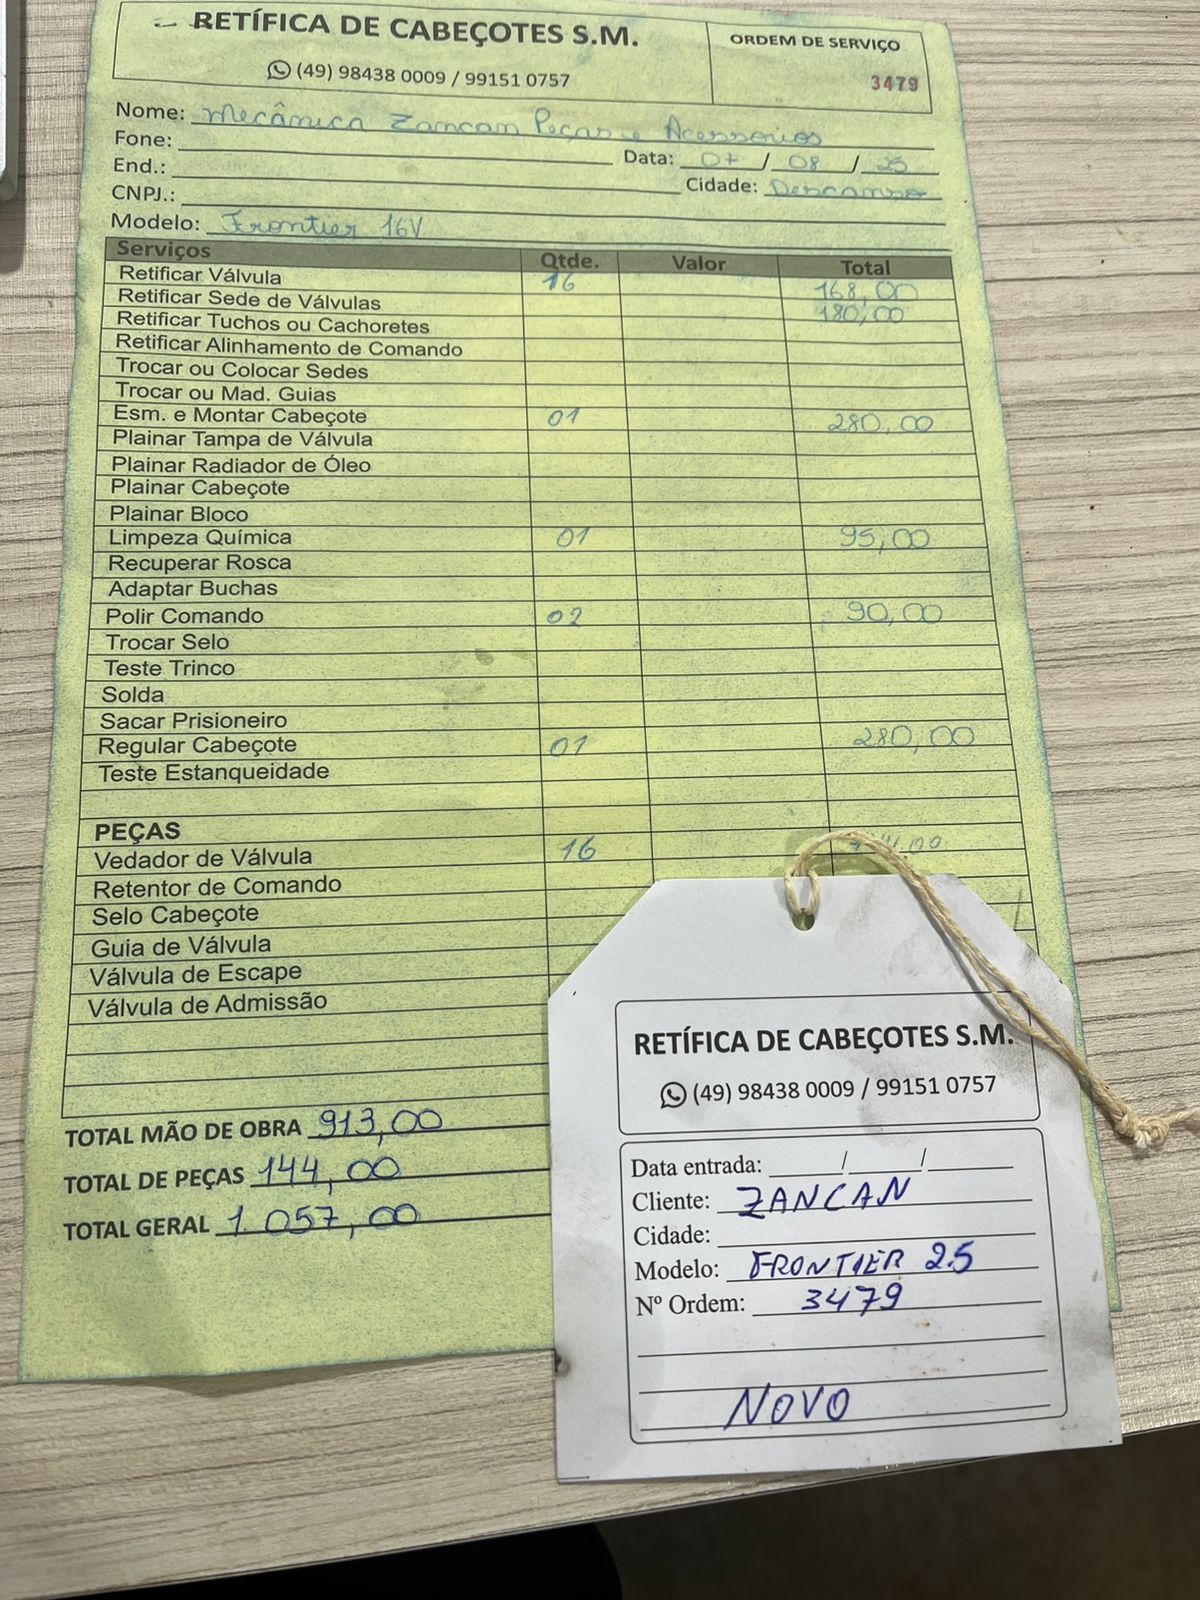 RETÍFICA DE CABEÇOTES S.M.
ORDEM DE SERVIÇO
(49) 98438 0009 / 99151 0757
3479
Nome: Mecânica Zancan Peças e Acessorios
Fone:
Data: 07 / 08 / 25
End.:
Cidade: Descanso
CNPJ.:
Modelo: Frontier 16V
Serviços Qtde. Valor Total
Retificar Válvula 16 168,00
Retificar Sede de Válvulas 180,00
Retificar Tuchos ou Cachoretes
Retificar Alinhamento de Comando
Trocar ou Colocar Sedes
Trocar ou Mad. Guias
Esm. e Montar Cabeçote 01 280,00
Plainar Tampa de Válvula
Plainar Radiador de Óleo
Plainar Cabeçote
Plainar Bloco
Limpeza Química 01 95,00
Recuperar Rosca
Adaptar Buchas
Polir Comando 02 90,00
Trocar Selo
Teste Trinco
Solda
Sacar Prisioneiro
Regular Cabeçote 01 280,00
Teste Estanqueidade
PEÇAS
Vedador de Válvula 16
Retentor de Comando
Selo Cabeçote
Guia de Válvula
Válvula de Escape
Válvula de Admissão
TOTAL MÃO DE OBRA 913,00
TOTAL DE PEÇAS 144,00
TOTAL GERAL 1.057,00
RETÍFICA DE CABEÇOTES S.M.
(49) 98438 0009 / 99151 0757
Data entrada: ____/____/____
Cliente: ZANCAN
Cidade:
Modelo: FRONTIER 2.5
Nº Ordem: 3479
NOVO